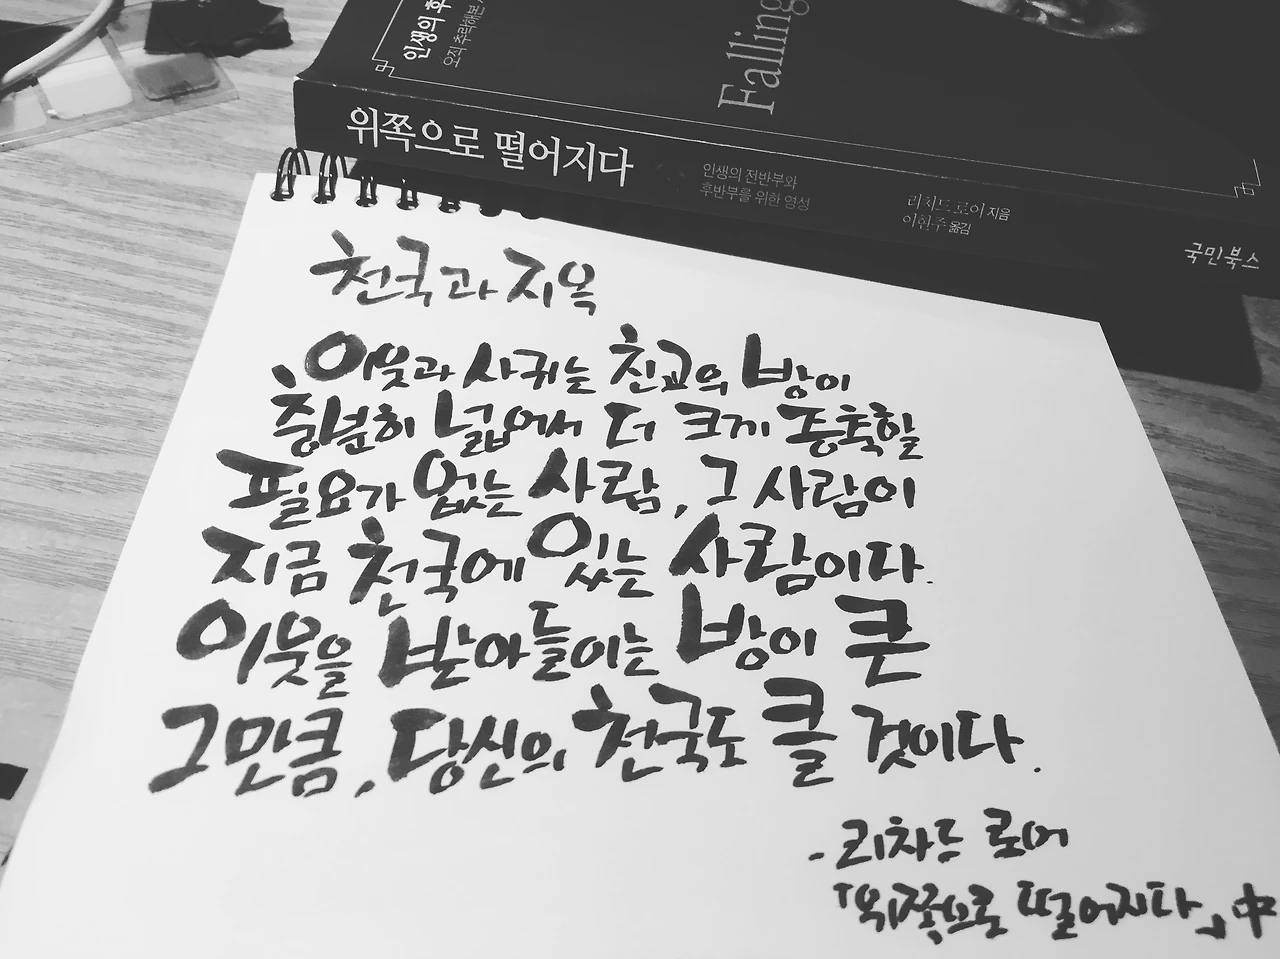 인생의
오직 추락해본
Falling
위쪽으로 떨어지다
인생의 전반부와
후반부를 위한 영성
리처드 로어 지음
이현주 옮김
국민북스
천국과 지옥
이웃과 사귀는 친교의 방이
충분히 넓어서 더 크게 증축할
필요가 없는 사람, 그 사람이
지금 천국에 있는 사람이다.
이웃을 받아들이는 방이 큰
그만큼, 당신의 천국도 클 것이다.
- 리차드 로어
「위쪽으로 떨어지다」 中